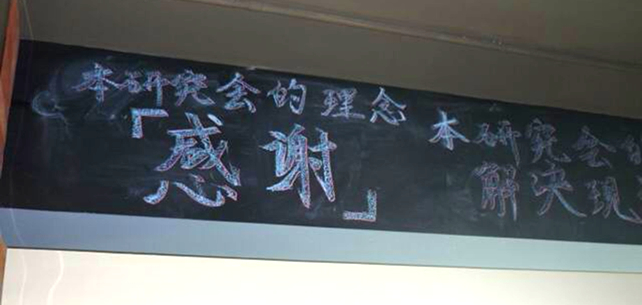 本研究会的理念
「感谢」
本研究会的
解决现